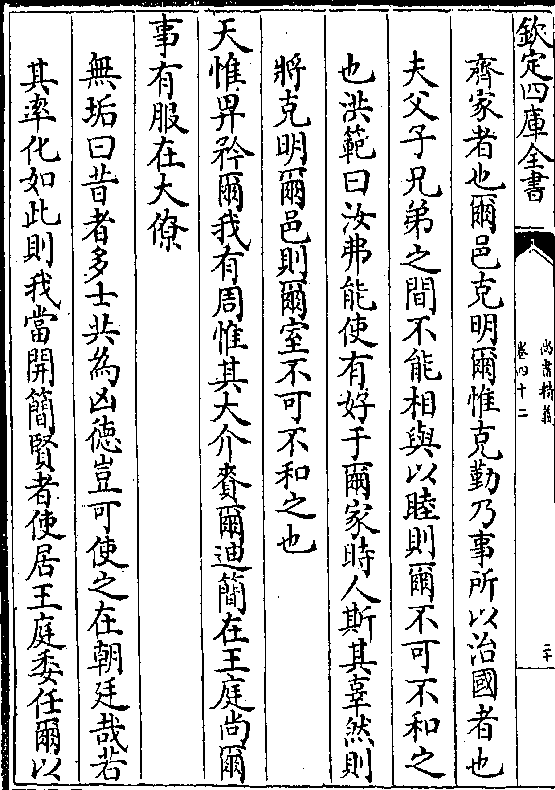 欽定四庫全書
尚書精義
卷四十二
二十
齊家者也爾邑克明爾惟克勤乃事所以治國者也
夫父子兄弟之間不能相與以睦則爾不可不和之
也洪範曰汝弗能使有好于爾家時人斯其辜然則
將克明爾邑則爾室不可不和之也
天惟畀矜爾我有周惟其大介賚爾迪簡在王庭尚爾
事有服在大僚
無垢曰昔者多士共為凶徳豈可使之在朝廷哉若
其率化如此則我當開簡賢者使居王庭委任爾以